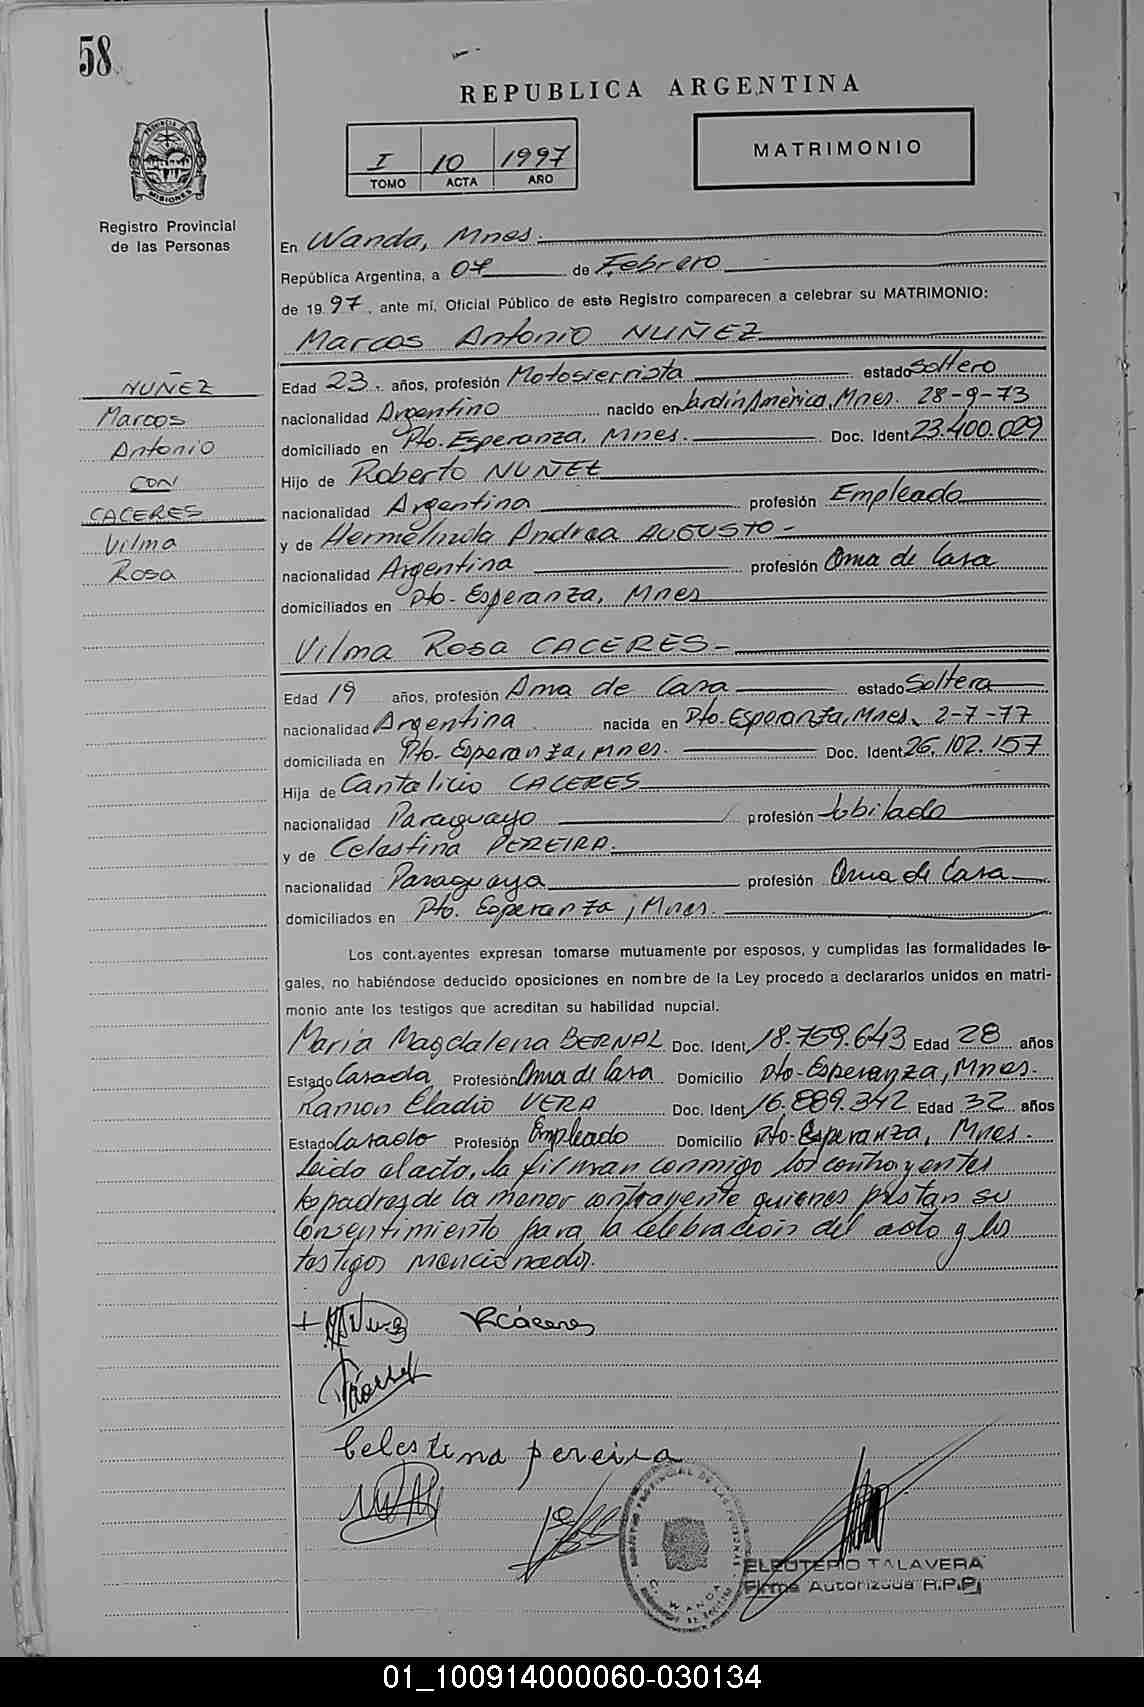 58
REPUBLICA ARGENTINA
I 10 1997
TOMO ACTA AÑO
MATRIMONIO
PROVINCIA DE MISIONES
Registro Provincial
de las Personas
En Wanda, Mnes.
República Argentina, a 07 de Febrero
de 1997, ante mí, Oficial Público de este Registro comparecen a celebrar su MATRIMONIO:
Marcos Antonio NUÑEZ
NUÑEZ
Marcos
Antonio
CON
CACERES
Vilma
Rosa
Edad 23. años, profesión Motosierrista estado Soltero
nacionalidad Argentino nacido en Jardín América, Mnes. 28-9-73
domiciliado en Pto. Esperanza, Mnes. Doc. Ident 23.400.029
Hijo de Roberto NUÑEZ
nacionalidad Argentina profesión Empleado
y de Hermelinda Andrea AUGUSTO -
nacionalidad Argentina profesión Ama de Casa
domiciliados en Pto- Esperanza, Mnes
Vilma Rosa CACERES -
Edad 19 años, profesión Ama de Casa estado Soltera
nacionalidad Argentina nacida en Pto. Esperanza, Mnes. 2-7-77
domiciliada en Pto- Esperanza, Mnes. Doc. Ident 26.102.157
Hija de Cantalicio CACERES
nacionalidad Paraguayo profesión Jubilado
y de Celestina PEREIRA.
nacionalidad Paraguaya profesión Ama de Casa
domiciliados en Pto. Esperanza, Mnes.
Los contrayentes expresan tomarse mutuamente por esposos, y cumplidas las formalidades le-
gales, no habiéndose deducido oposiciones en nombre de la Ley procedo a declararlos unidos en matri-
monio ante los testigos que acreditan su habilidad nupcial.
Maria Magdalena BERNAL Doc. Ident 18.759.643 Edad 28 años
Estado Casada Profesión Ama de Casa Domicilio Pto-Esperanza, Mnes.
Ramon Eladio VERA Doc. Ident 16.889.342 Edad 32 años
Estado Casado Profesión Empleado Domicilio Pto-Esperanza, Mnes.
Leido el acta, la firman conmigo los contrayentes
los padres de la menor contrayente quienes prestan su
consentimiento para la celebración del acto y los
testigos mencionados.
Celestina pereira
ELEUTERIO TALAVERA
Firma Autorizada R.P.P.
01_100914000060-030134